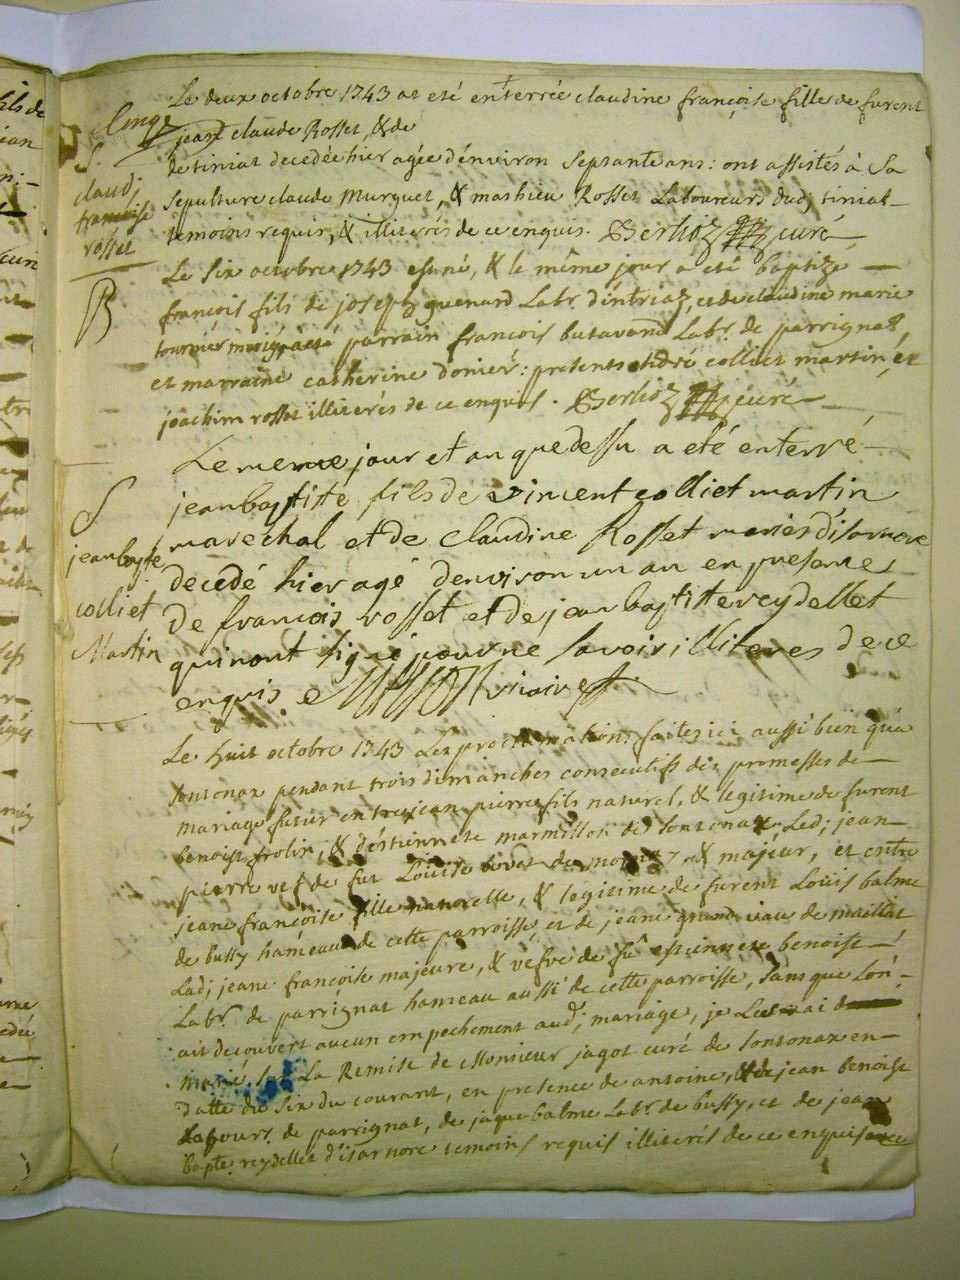 Le deux octobre 1743 at eté enterrée claudine françoise fille de furent
jean claude Rosset, & de
de tiniat decedée hier agée d'environ septante ans : ont assistés à sa
sepulture claude Murguet, & mathieu Rosset Laboureurs dud, tiniat
temoins requis, & illiterés de ce enquis. Berlioz curé
S.
claud;
françoise
rosset
Le six octobre 1743 est né, & le même jour a eté baptizé
B
françois fils de joseph guenard Labr. d'intriaz, et de claudine marie
tournier mariés a eté parrain françois butavand Labr. de parrignat,
et marraine catherine donier : presents andré colliet martin, et
joachim rosset illiterés de ce enquis. Berlioz curé
Le meme jour et an que dessu a eté enterré
S
jean bapte
colliet
Martin
jean baptiste fils de vincent colliet martin
marechal et de Claudine Rosset mariés d'isarnore
decedé hier agé denviron un an en presence
de francois rosset et de jean baptiste reydellet
qui nont signé pour ne savoir illiteres de ce
enquis vicaire
Le huit octobre 1743 Les proclamations faites ici aussi bien qu'a
sontonax pendant trois dimanches consecutifs des promesses de
mariage futur entre jean pierre fils naturel, & legitime de furent
benoist frolin, & d'éstiennete marmillon de sontonax. Led; jean
pierre vef de fut Louise & majeur, et entre
jeane françoise fille naturelle, & legitime de furent Louis balme
de bussy hameau de cette parroisse, et de jeane grand viau de maillat
Lad; jeane françoise majeure, & vefve de fu estiennete benoist
Labr. de parrignat hameau aussi de cette parroisse, sans que l'on
ait decouvert aucun empechement aud; mariage, je Les ai
marié sur La Remise de Monsieur jagot curé de sontonax en
datte du six du courant, en presence de antoine, & de jean benoist
Labours. de parrignat, de jaque balme Labr. de bussy, et de jean
bapte. reydellet d'isarnore temoins requis illiterés de ce enquis